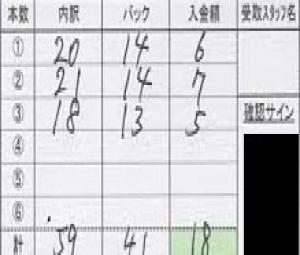 本数 内訳 バック 入金額 受取スタッフ名
① 20 14 6
② 21 14 7
③ 18 13 5 確認サイン
④
⑤
⑥
計 59 41 18